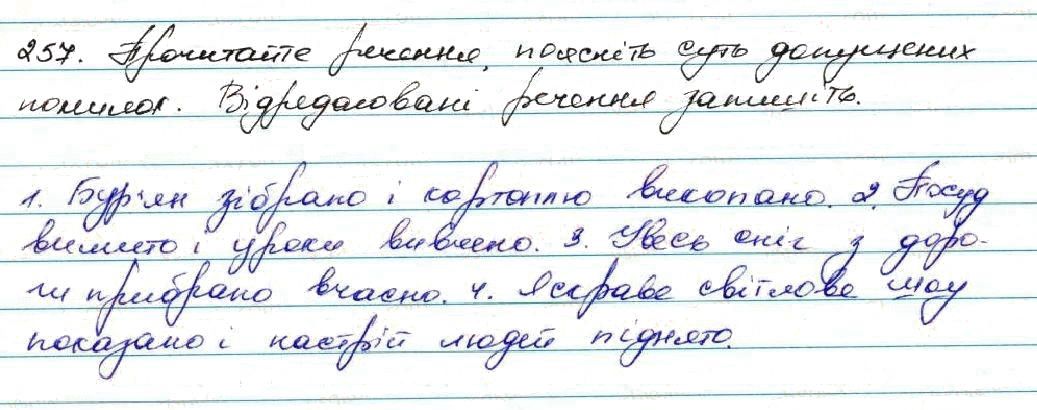 257. Прочитайте речення, поясніть суть допущених
помилок. Відредаговані речення запишіть.
1. Бур'ян зібрано і картоплю викопано. 2. Посуд
вимито і уроки вивчено. 3. Увесь сніг з доро-
ги прибрано вчасно. 4. Яскраве світлове шоу
показано і настрій людей піднято.